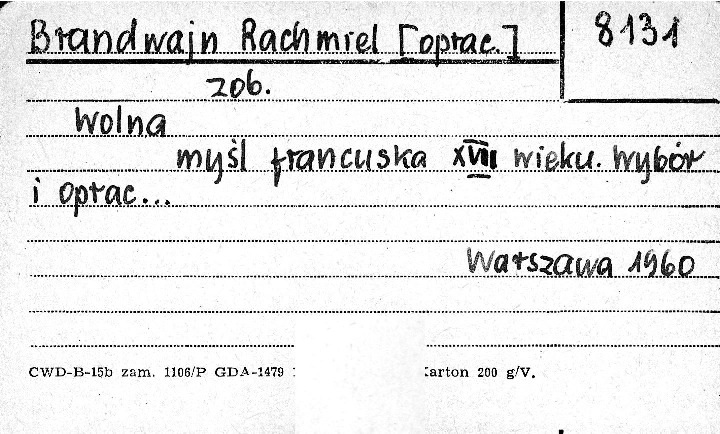 Brandwajn Rachmiel [oprac.] 8131
zob.
Wolna
myśl francuska XVIII wieku. Wybór
i oprac...
Warszawa 1960
CWD-B-15b zam. 1106/P GDA-1479 arton 200 g/V.